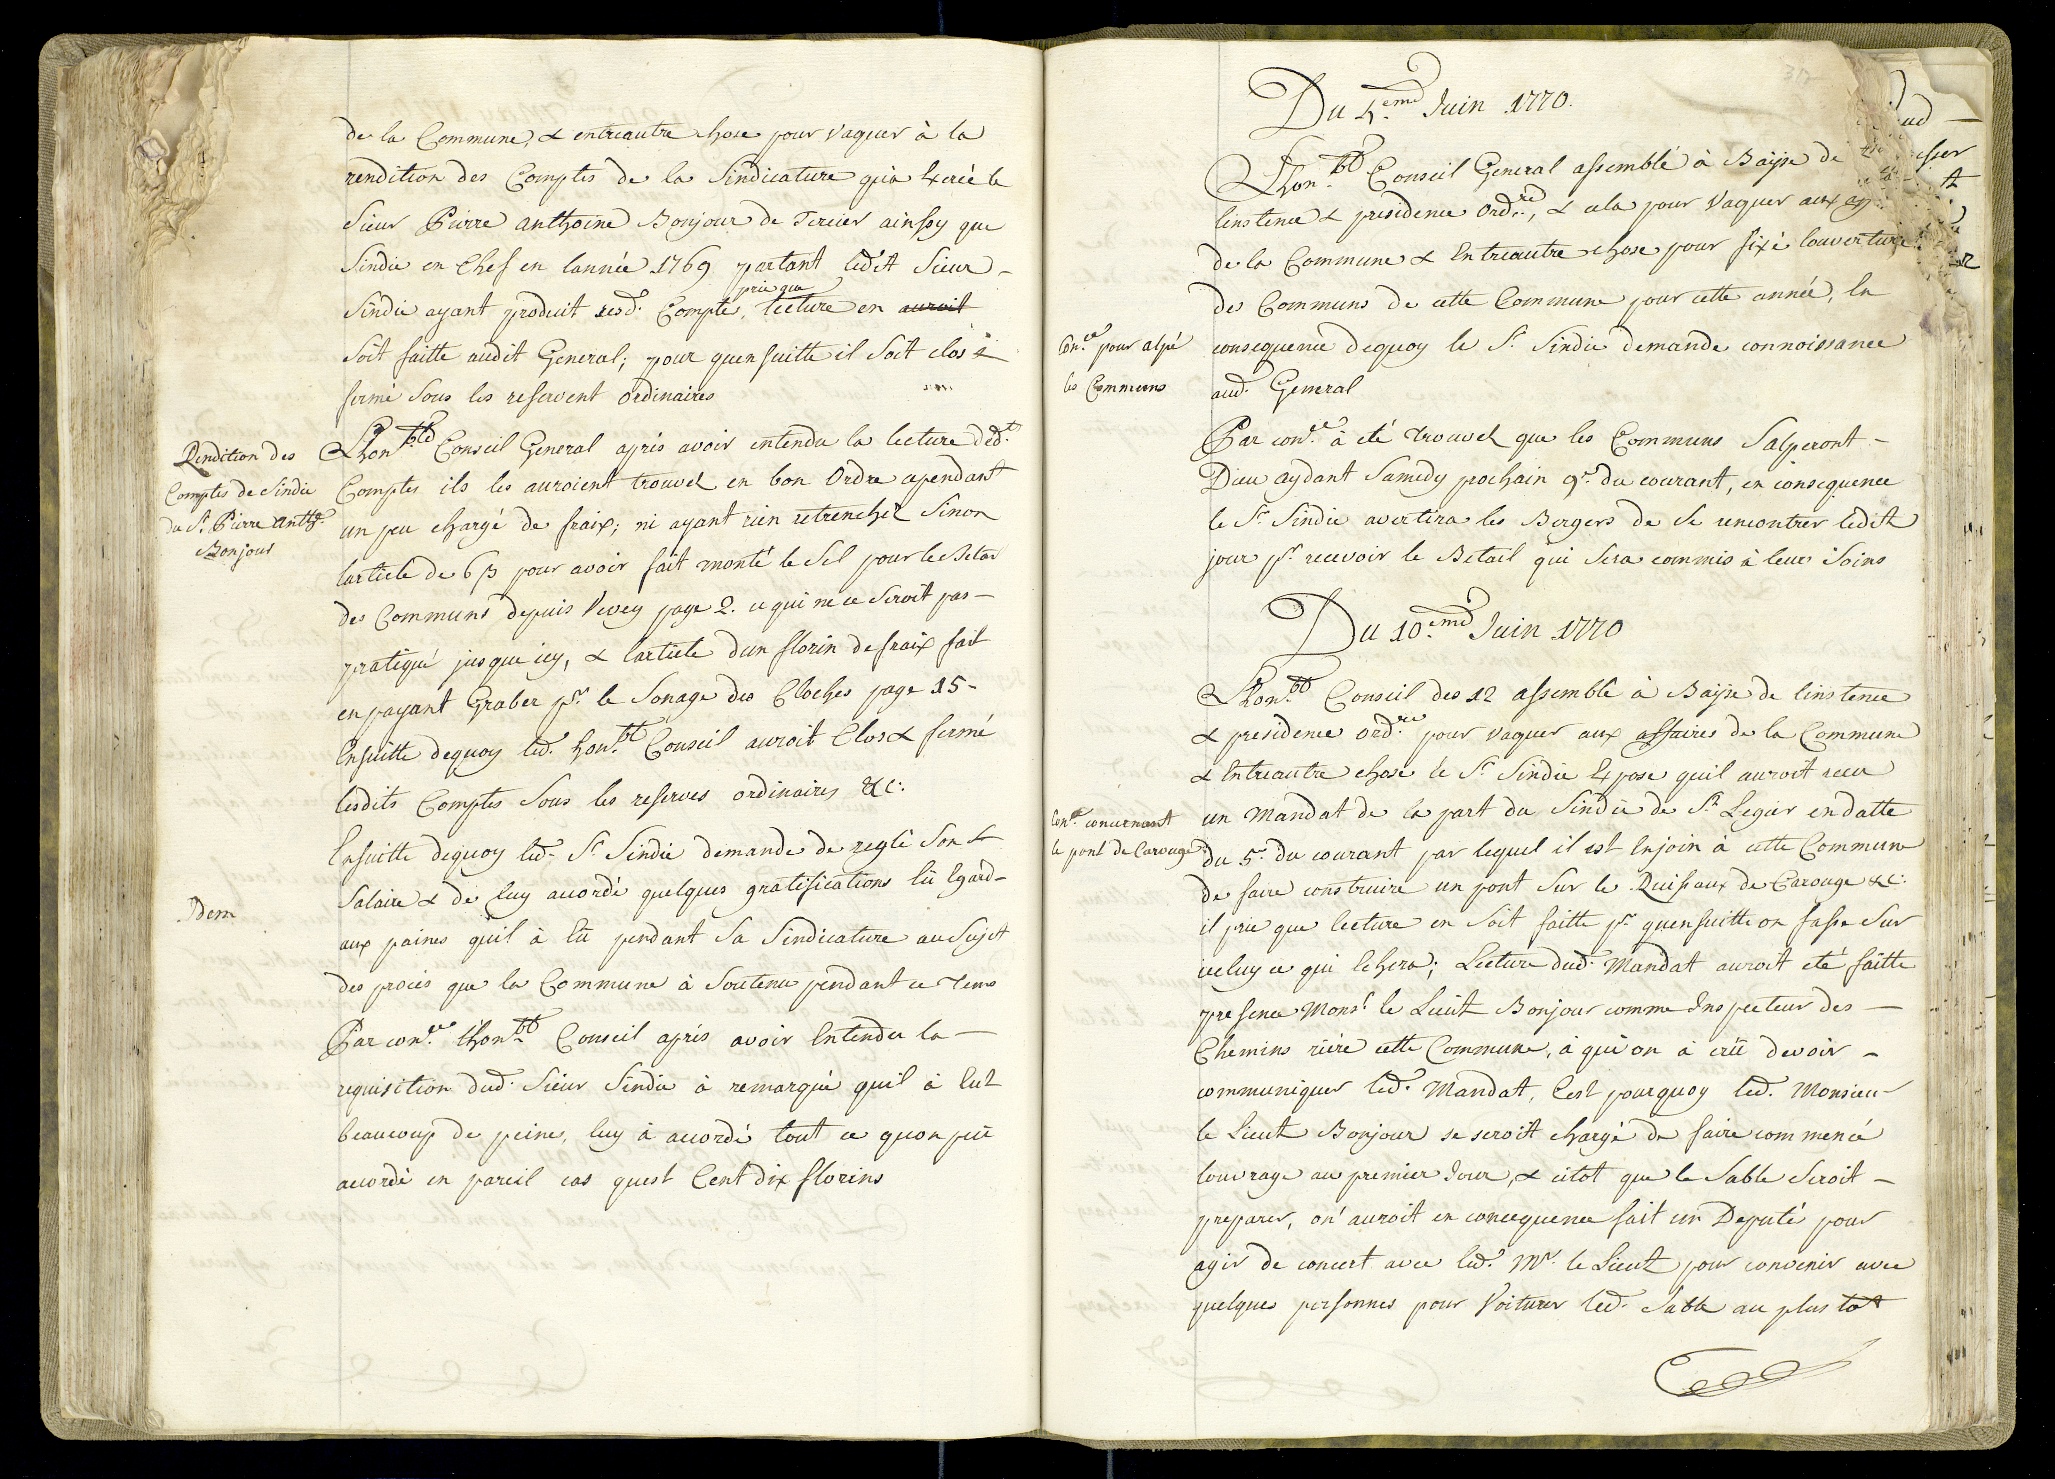 de la Commune, & entreautre chose pour vaquer à la
rendition des Comptes de la Sindicature qu'a Exercé le
Sieur Pierre anthoine Bonjour de Tercier ainssy que
Sindic en Chef en lannée 1769 partant ledit Sieur -
prie que
Sindic ayant produit sesd. Compte, lecture en auroit
Soit faitte audit General; pour quensuitte il Soit clos &
fermé Sous les reservent ordinaires
Rendition des
Comptes de Sindic
du Sr. Pierre anthe.
Bonjour
Lhon.ble Conseil General aprés avoir entendu la lecture desd.ts
Comptes ils les auroient trouvez en bon Ordre cependant
un peu chargé de fraix; ni ayant rien retrenchez Sinon
larticle de 6 ß pour avoir fait monté le Sel pour le Betai
des Communs depuis Vevey page 2. ce qui ne ce Seroit pas -
pratiqué jusque icy, & larticle dun florin defraix fait
en payant Graber pr. le Sonage des Cloches page 15 -
Ensuitte dequoy led. hon.ble Conseil auroit Clos & fermé
lesdits Comptes Sous les reserves ordinaires &c:
Idem
Ensuitte dequoy led. Sr. Sindic demande de reglé Son
Salaire & de luy accordé quelques gratifications Eü Egard -
aux paines quil à Eü pendant Sa Sindicature au Sujet
des procés que la Commune à Soutenu pendant ce Tems
Par con.ce Lhon.ble Conseil aprés avoir Entendu la -
requisition dud. Sieur Sindic à remarqué quil à Eut
beaucoup de peine, luy à accordé tout ce quon peü
accordé en pareil cas quest Cent dix florins
Du 4.eme Juin 1770.
Lhon.ble Conseil General assemblé à Baÿse de
linstence & presidence Ord.re, & cela pour Vaquer aux
de la Commune & Entreautre chose pour fixé louverture
des Communs de cette Commune pour cette année, En
Con.ce pour alpé
les Communs
consequence dequoy le Sr. Sindic demande connoissance
aud. General
Par con.ce à eté trouvez que les Communs Salperont -
Dieu aydant Samedy prochain 9e. du courant, en consequence
le Sr. Sindic avertira les Bergers de Se rencontrer ledit
jour pr. recevoir le Betail qui Sera commis à leur Soins
Du 10.eme Juin 1770
Lhon.ble Conseil des 12 assemblé à Baÿse de linstence
& presidence ord.re pour vaquer aux affaires de la Commune
& Entreautre chose le Sr. Sindic Expose quil auroit receu
Con.ce concernant
le pont de Carouge
un Mandat de la part du Sindic de St. Legier endatte
du 5e. du courant par lequel il est Enjoin à cette Commune
de faire construire un pont Sur le Ruissaux de Carouge &c:
il prie que lecture en Soit faitte pr. quensuitte on fasse Sur
iceluy ce qui Echera; Lecture dud. Mandat auroit eté faitte
presence Monsr. le Lieut Bonjour comme Inspecteur des -
Chemins riére cette Commune, à qui on à crü devoir -
communiquer led. Mandat, Cest pourquoy led. Monsieur
le Lieut Bonjour se seroit chargé de faire commencé
louvrage au premier Jour, & citot que le Sable Seroit -
preparer, on auroit en concequence fait un Deputé pour
agir de concert avec led. Mr. le Lieut pour convenir avec
quelques personnes pour Voiturer led. Sable au plus tot